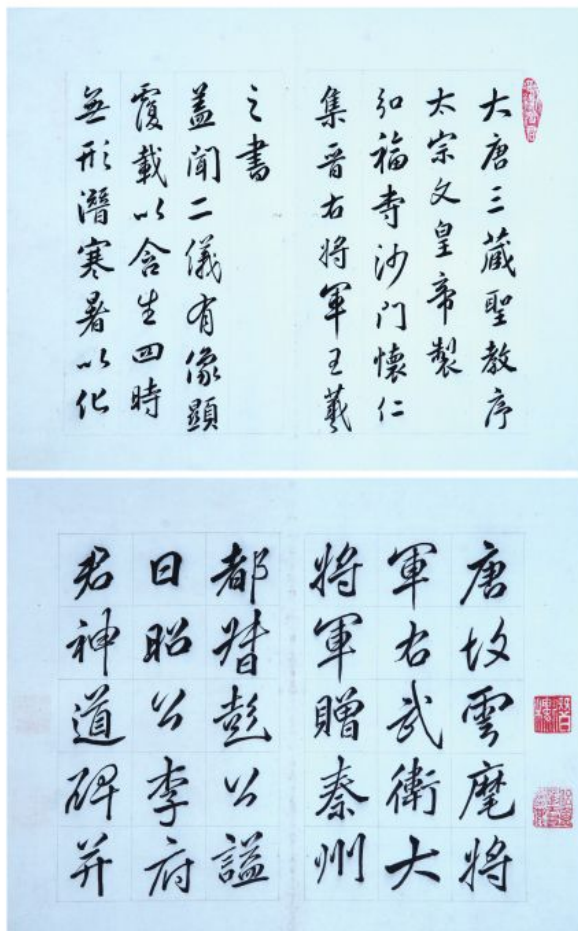 大唐三藏聖教序
太宗文皇帝製
弘福寺沙门懷仁
集晋右將軍王羲
之書
盖聞二儀有像顯
覆載以含生四時
無形潛寒暑以化
唐故雲麾將
軍右武衛大
將軍贈秦州
都督彭公謚
曰昭公李府
君神道碑并